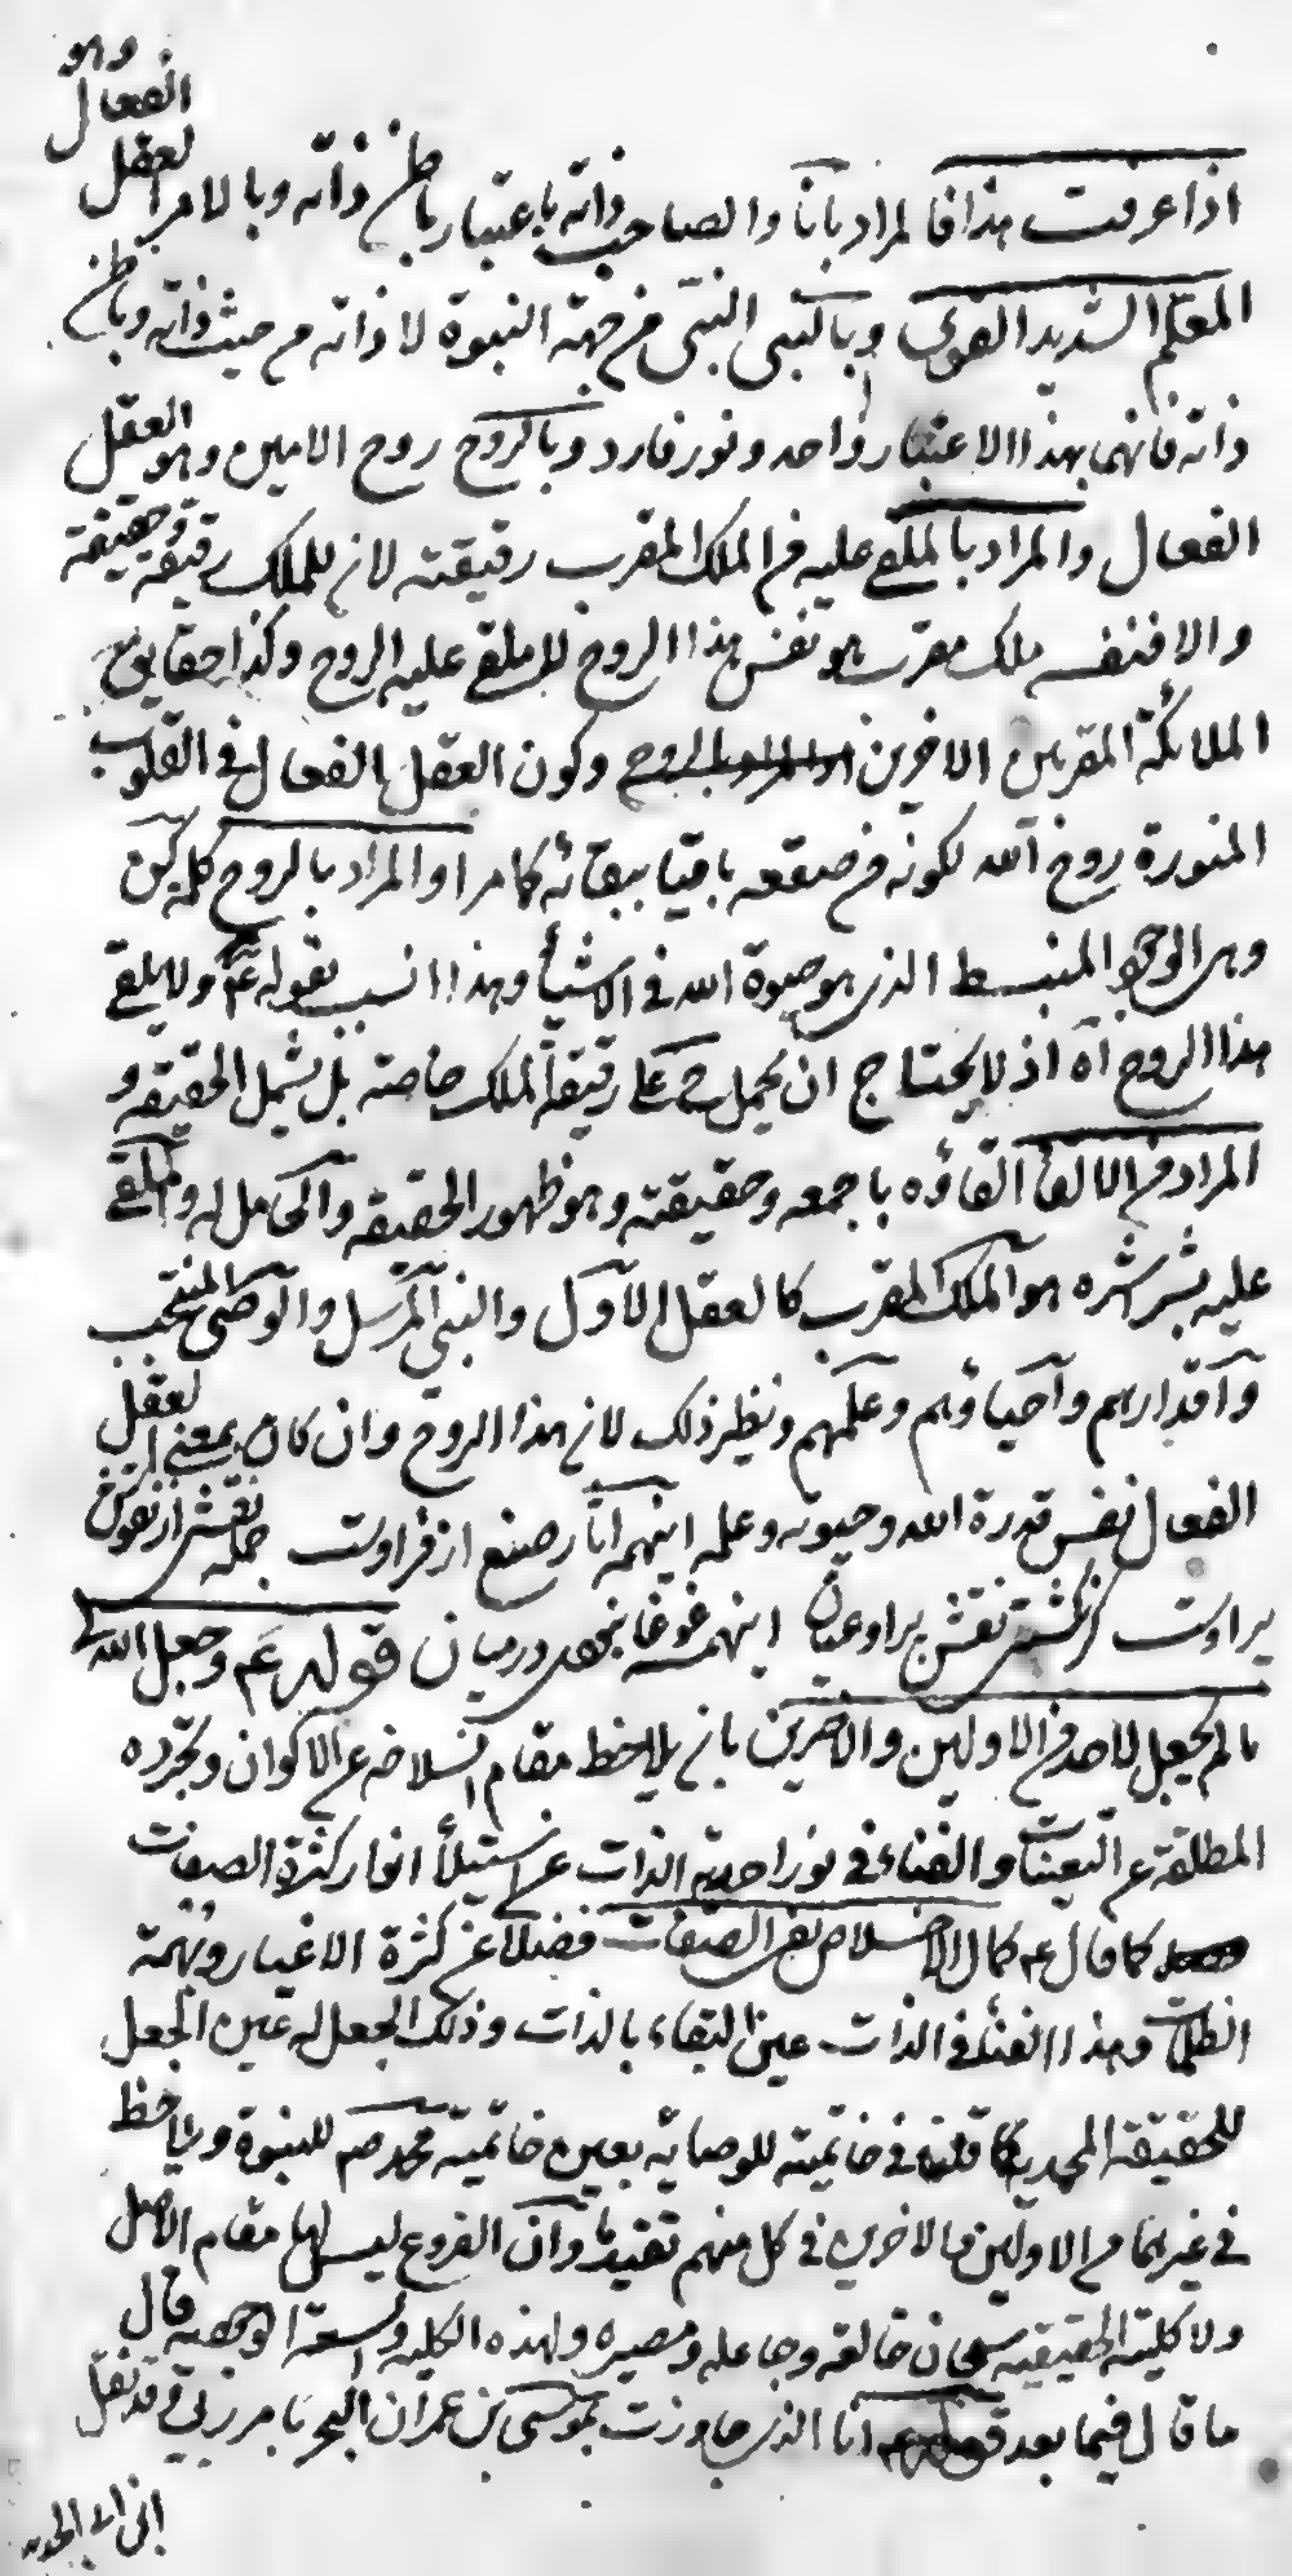 اذا عرفت هذا فالمراد بانا والصاحب ذاته باعتبار باطن ذاته وبالامر العقل الفعال وهو
المعلم الشديد القوى وبالنبى النبى من جهة النبوة لا ذاته من حيث ذاته وباطن
ذاته فانهما بهذا الاعتبار واحد ونور فارد وبالروح روح الامين وهو العقل
الفعال والمراد بالملقى عليه من الملك المقرب رقيقته لان للملك رقيقة وحقيقة
والا فنفس ملك مقرب هو نفس هذا الروح لا ملقى عليه الروح وكذا حقايق
الملائكة المقربين الاخرين وكون العقل الفعال فى القلوب
المنورة روح الله لكونه من صقعه باقيا ببقائه كما مر او المراد بالروح كلمة كن
وهى الوجود المنبسط الذى هو حيوة الله فى الاشيأ وهذا انسب بقوله ع ولا يلقى
هذا الروح آه اذ لا يحتاج ان يحمل ح على رقيقة الملك خاصة بل يشمل الحقيقة و
المراد من الالقأ القاؤه باجمعه وحقيقته وهو ظهور الحقيقة والحامل له والملقى
عليه بشراشره هو الملك المقرب كالعقل الاول والنبى المرسل والوصى المنتجب
واقدارهم واحياؤهم وعلمهم ونظير ذلك لان هذا الروح وان كان بمعنى العقل
الفعال نفس قدرة الله وحيوته وعلمه اينهمه آثار صنع از فر اوست جمله نقشى از نقوش
پر اوست نقش پر او عيان اينهمه غوغا درميان قوله ع وجعل الله لى
ما لم يجعل لاحد من الاولين والاخرين بان يلاحظ مقام انسلاخه عن الاكوان وتجرده
المطلقة عن التعينات والفناء فى نور احدية الذات عن استيلأ انوار كثرة الصفات
كما قال ع كمال الاخلاص نفى الصفات فضلا عن كثرة الاغيار وتهمة
الظلمات وهذا الفنأ فى الذات عين البقاء بالذات وذلك الجعل له عين الجعل
للحقيقة المحمدية كما قلنا فى خاتميته للوصاية بعين خاتمية محمد ص للنبوة ويلاحظ
فى غيرهما من الاولين والاخرين فى كل منهم تقيدا وان الفروع ليس لها مقام الاصل
ولا كليته الحقيقية سبحان خالقه وجاعله ومصيره ولهذه الكلية والسعة الوجودية قال
ما قال فيما بعد قوله ع انا الذى جاوزت بموسى بن عمران البحر بامر ربى قد نقل